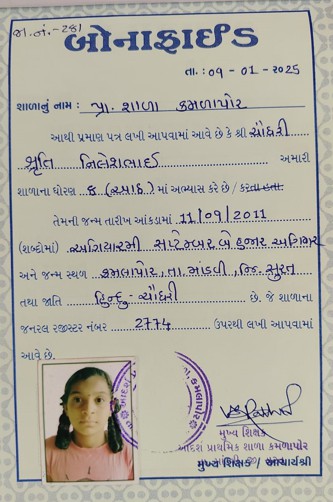 જા.નં.-281
બોનાફાઈડ
તા. : 09 - 01 - 2025
શાળાનું નામ : પ્રા. શાળા કમળાપોર
આથી પ્રમાણ પત્ર લખી આપવામાં આવે છે કે શ્રી ચૌધરી
શ્રુતિ નિલેશભાઈ અમારી
શાળાના ધોરણ 8 (આઠ) માં અભ્યાસ કરે છે / કરતા હતા.
તેમની જન્મ તારીખ આંકડામાં 11/09/2011
(શબ્દોમાં) અગિયારમી સપ્ટેમ્બર બે હજાર અગિયાર
અને જન્મ સ્થળ કમલાપોર, તા. માંડવી, જિ. સુરત
તથા જાતિ હિન્દુ - ચૌધરી છે. જે શાળાના
જનરલ રજીસ્ટર નંબર 2774 ઉપરથી લખી આપવામાં
આવે છે.
તા. કમલાપોર
મુખ્ય શિક્ષક
આદર્શ પ્રાથમિક શાળા કમળાપોર
મુખ્ય શિક્ષક / આચાર્યશ્રી